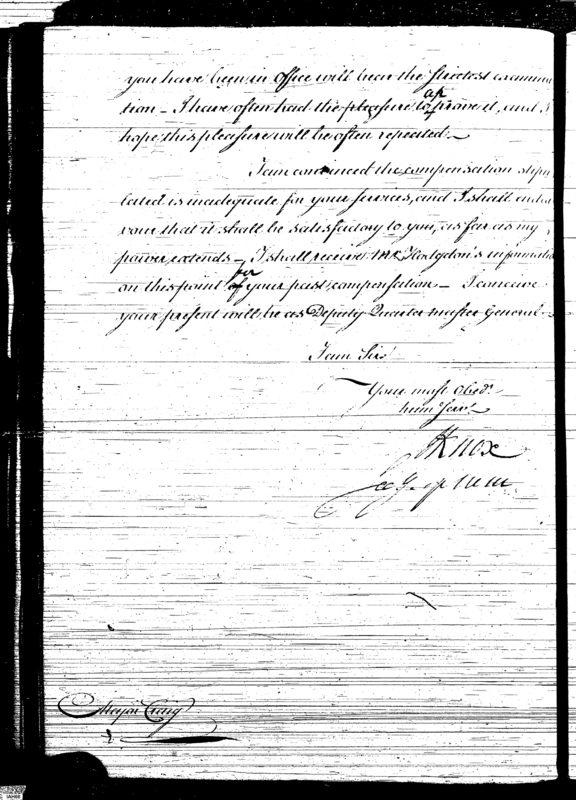 you have been in Office will bear the strictest examina
tion – I have often had the pleasure to approve it, and I
hope this pleasure will be often repeated. –
I am convinced the compensation stipu
lated is inadequate for your services, and I shall endea
vour that it shall be satisfactory to you, as far as my
power extends – I shall receive Mr Hodgdon's information
on this point for your past compensation – I conceive
your present will be as Deputy Quarter master General –
I am Sir
Your most Obed.
hum Serv.
HKnox
Major Craig